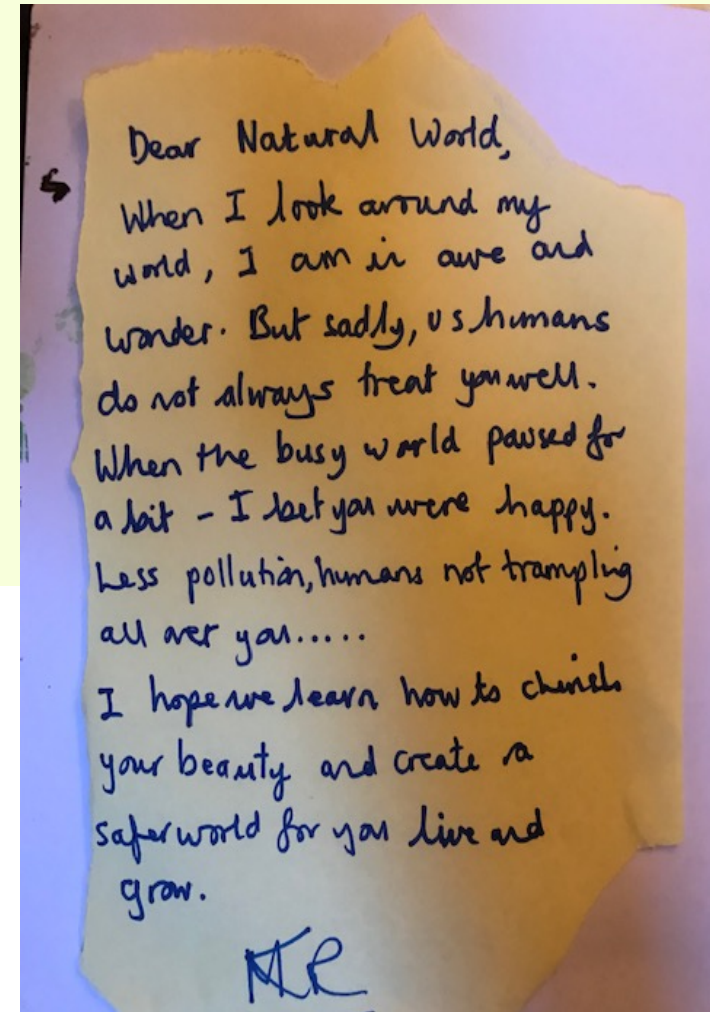 Dear Natural World,
When I look around my
world, I am in awe and
wonder. But sadly, us humans
do not always treat you well.
When the busy world paused for
a bit - I bet you were happy.
Less pollution, humans not trampling
all over you.....
I hope we learn how to cherish
your beauty and create a
safer world for you live and
grow.